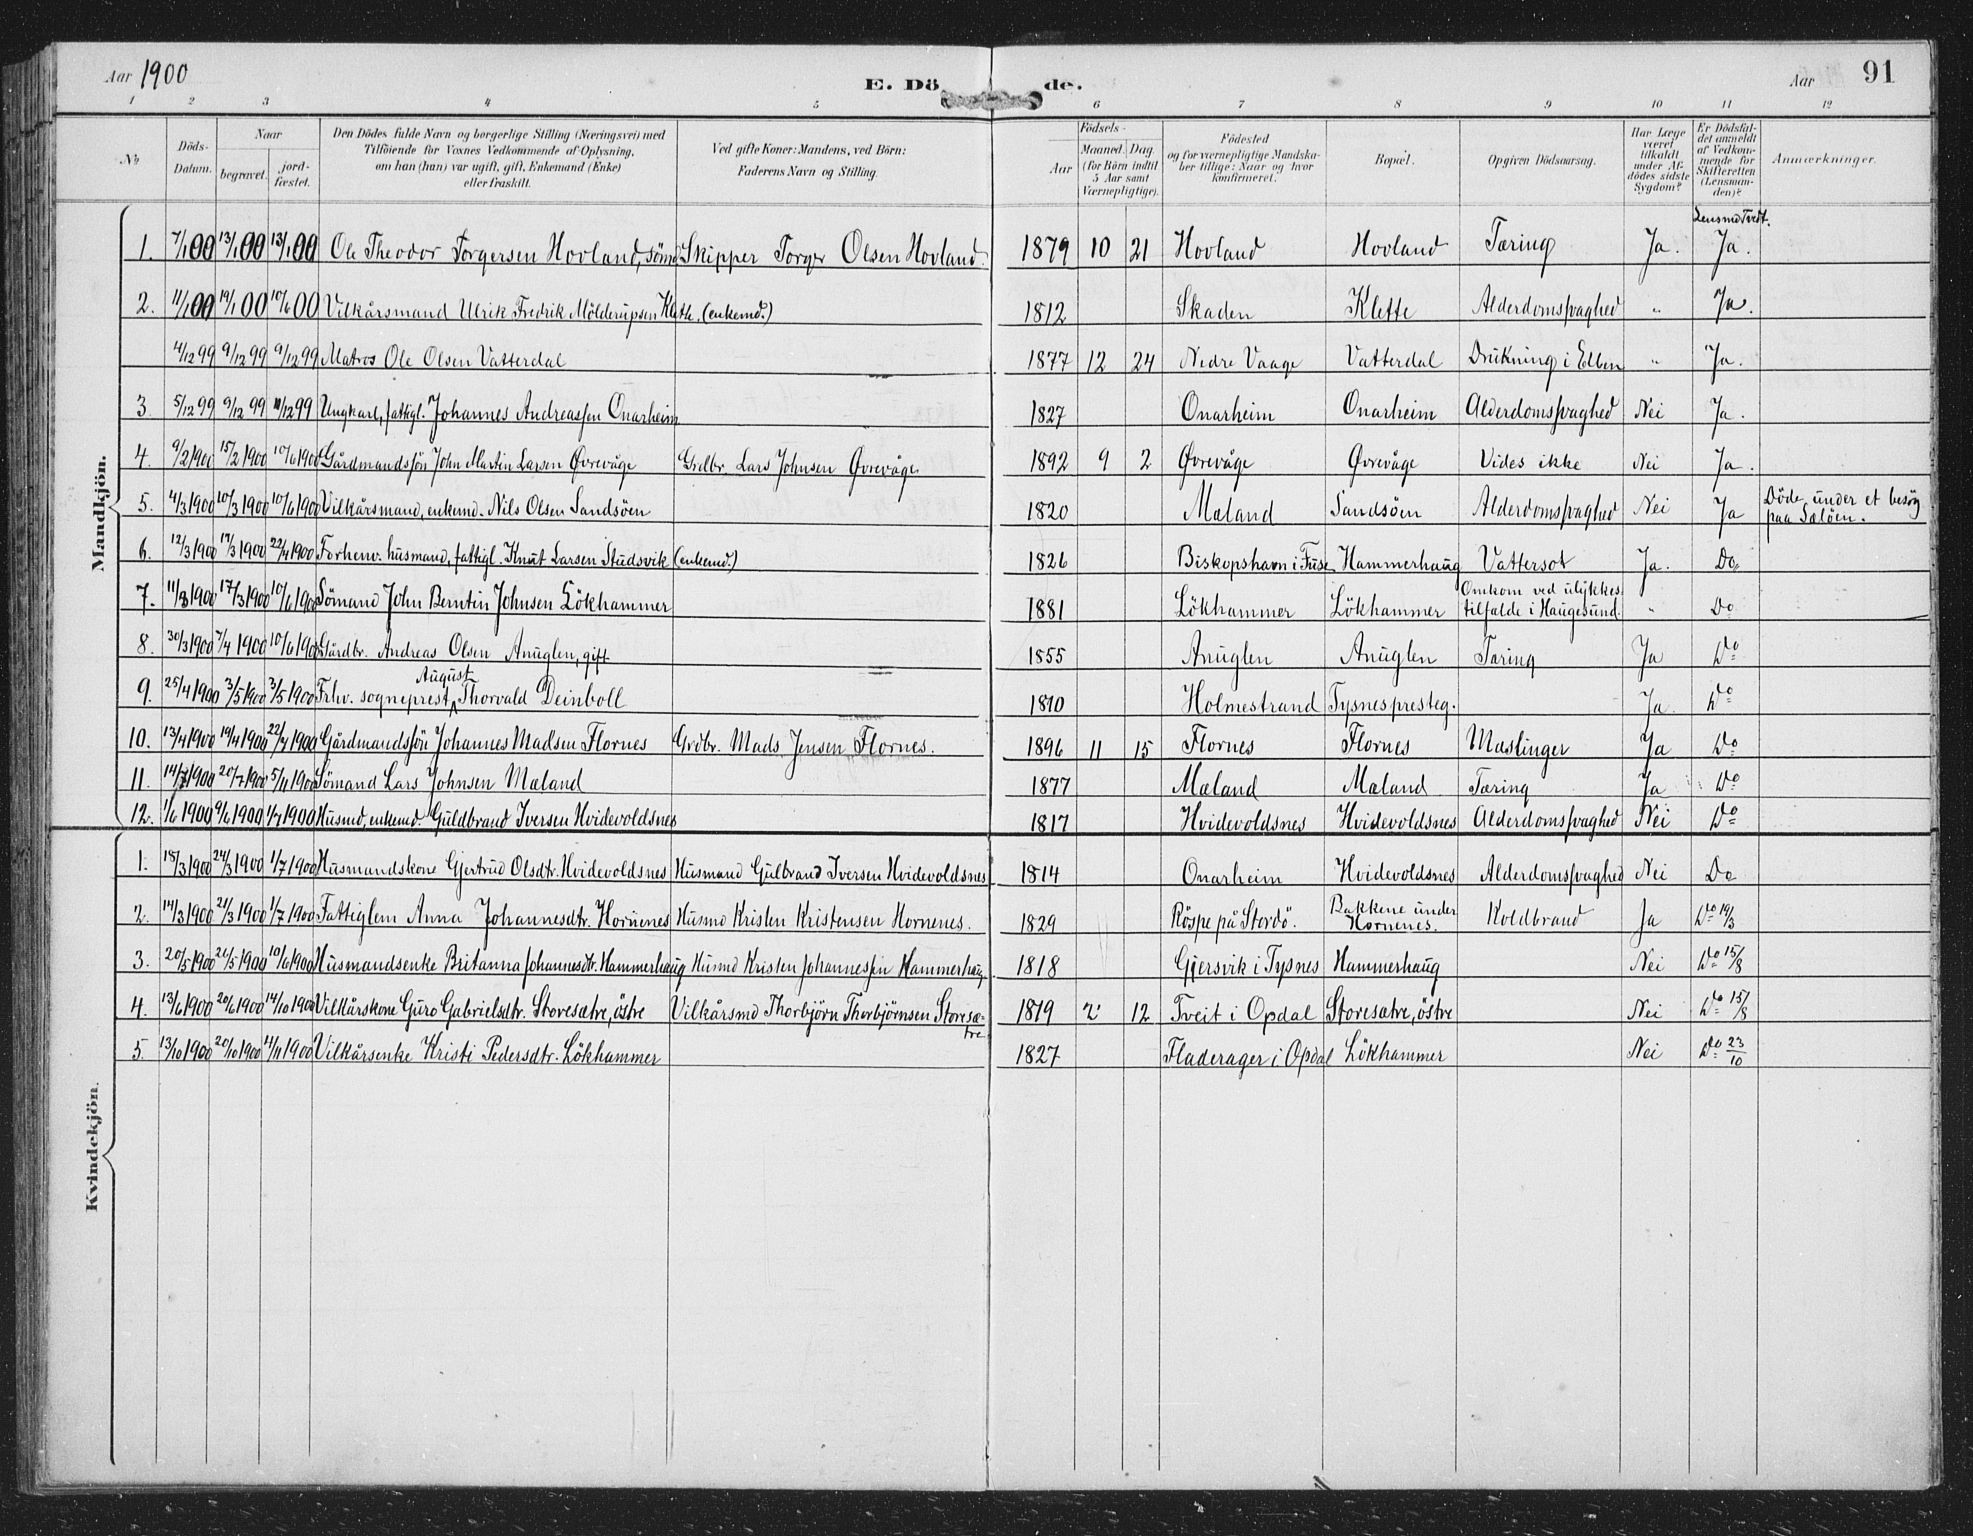 Aar 1900 E. Dö de. Aar 91
1 2 3 4 5 6 7 8 9 10 11 12
No
Döds-Datum.
Naar
begravet.
jord-fæstet.
Den Dödes fulde Navn og borgerlige Stilling (Næringsvei) med
Tilföiende for Voxnes Vedkommende af Oplysning,
om han (hun) var ugift, gift, Enkemand (Enke)
eller fraskilt.
Ved gifte Koner: Mandens, ved Börn:
Faderens Navn og Stilling.
Födsels-
Aar
Maaned. Dag.
(for Börn indtil
5 Aar samt
Værnepligtige).
Födested
og for værnepligtige Mandska-
ber tillige: Naar og hvor
konfirmeret.
Bopæl.
Opgiven Dödsaarsag.
Har Læge
været
tilkaldt
under Af-
dödes sidste
Sygdom?
Er Dödsfal-
det anmeldt
af Vedkom-
mende for
Skifteretten
(Lensman-
den)?
Anmærkninger.
Mandkjön.
Lensmd Tvedt.
1. 7/1 00 13/1 00 13/1 00 Ole Theodor Torgersen Hovland, sömd Skipper Torger Olsen Hovland. 1879 10 21 Hovland Hovland Tæring Ja. Ja.
2. 11/1 00 19/1 00 10/6 00 Vilkårsmand Ulrik Fredrik Mölderupsen Klette. (enkemd.) 1812 Skaden Klette Alderdomssvaghed " Ja.
4/12 99 9/12 99 9/12 99 Matros Ole Olsen Vatterdal 1877 12 24 Nedre Vaage Vatterdal Drukning i Elben " Ja.
3. 5/12 99 9/12 99 10/12 99 Ungkarl, fattigl. Johannes Andreassen Onarheim 1827 Onarheim Onarheim Alderdomssvaghed Nei Ja.
4. 9/2 1900 15/2 1900 10/6 1900 Gårdmandssön John Martin Larsen Øvrevåge Grdbr. Lars Johnsen Øvrevåge. 1892 9 2 Øvrevåge Øvrevåge Vides ikke Nei Ja.
5. 4/3 1900 10/3 1900 10/6 1900 Vilkårsmand, enkemd. Nils Olsen Sandsöen 1820 Mæland Sandsöen Alderdomssvaghed Nei Ja Döde under et besög
paa Sælöen.
6. 12/3 1900 17/3 1900 22/4 1900 Forhenv. husmand, fattigl. Knut Larsen Studsvik (enkemd.) 1826 Biskopshavn i Fuse Hammerhaug Vattersot Ja. Do.
7. 11/3 1900 17/3 1900 10/6 1900 Sömand John Berntin Johnsen Lökhammer 1881 Lökhammer Lökhammer Omkom ved ulykkes-
tilfælde i Haugesund. " Do
8. 30/3 1900 7/4 1900 10/6 1900 Gårdbr. Andreas Olsen Anuglen, gift 1855 Anuglen Anuglen Tæring Ja Do
August
9. 25/4 1900 3/5 1900 3/5 1900 Frhv. sogneprest Thorvald Deinboll 1810 Holmestrand Tysnes presteg. Ja. Do
10. 13/4 1900 19/4 1900 22/4 1900 Gårdmandssön Johannes Madsen Flornes Grdbr. Mads Jensen Flornes. 1896 11 15 Flornes Flornes Mæslinger Ja Do
11. 14/7 1900 20/7 1900 5/11 1900 Sömand Lars Johnsen Mæland 1877 Mæland Mæland. Tæring Ja Do
12. 1/6 1900 9/6 1900 1/7 1900 Husmd, enkemd. Guldbrand Iversen Hvidevoldsnes 1817 Hvidevoldsnes Hvidevoldsnes Alderdomssvaghed Nei Do
Kvindekjön.
1. 18/3 1900 24/3 1900 1/7 1900 Husmandskone Gjertrud Olsdtr. Hvidevoldsnes Husmand Gulbrand Iversen Hvidevoldsnes 1814 Onarheim Hvidevoldsnes Alderdomssvaghed Nei Do
2. 14/3 1900 21/3 1900 1/7 1900 Fattiglem Anna Johannesdtr. Hornenes Husmd Kristen Kristensen Hornenes. 1829 Röspe på Stordö. Bakkene under
Hornenes. Koldbrand Ja Do 19/3
3. 20/5 1900 26/5 1900 10/6 1900 Husmandsenke Britanna Johannesdtr. Hammerhaug Husmd Kristen Johannessen Hammerhaug 1818 Gjersvik i Tysnes Hammerhaug Nei Do 15/8
4. 13/6 1900 20/6 1900 14/10 1900 Vilkårskone Guro Gabrielsdtr. Storesætre, östre Vilkårsmd Thorbjörn Thorbjörnsen Storesæ-
tre 1819 2 12 Tveit i Opdal Storesætre, östre Nei Do 15/8
5. 13/10 1900 20/10 1900 4/11 1900 Vilkårsenke Kristi Pedersdtr. Lökhammer 1827 Fladerager i Opdal Lökhammer Nei Do 23/10